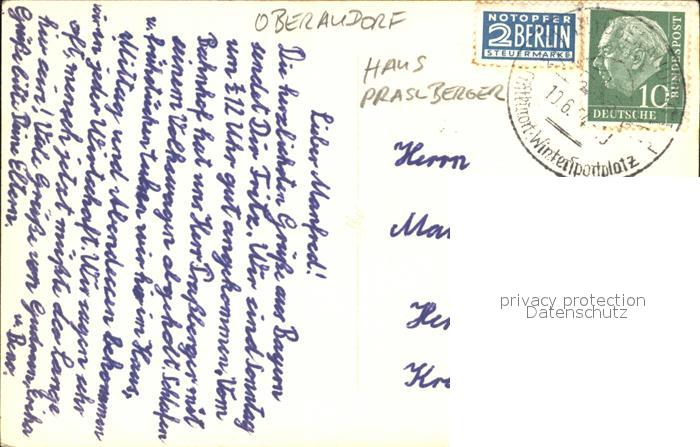 OBERAUDORF
HAUS
PRASLBERGER
NOTOPFER
2 BERLIN
STEUERMARKE
10
DEUTSCHE
BUNDESPOST
10.6.
Wintersportplatz
Herrn
Ma
He
Kr
privacy protection
Datenschutz
Lieber Manfred!
Die herzlichsten Grüße aus Bayern
sendet Dir Fritz. Wir sind Sonntag
um ½ 12 Uhr gut angekommen. Vom
Bahnhof hat uns Herr Praßberger mit
seinem Volkswagen abgeholt. Schlafen
u. frühstücken tun wir hier im Haus,
Mittag und Abendessen bekommen
wir in jeder Wirtschaft. Wir sagen sehr
oft, mensch jetzt müßte der Lange
hier sein! Viele Grüße von Gudrun, Erika
Grüße bitte Deine Eltern.
u. Rosa